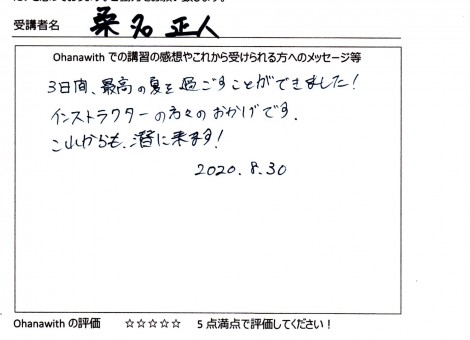 受講者名 桑名 正人
Ohanawith での講習の感想やこれから受けられる方へのメッセージ等
3日間、最高の夏を過ごすことができました!
インストラクターの方々のおかげです.
これからも、潜に来ます!
2020.8.30
Ohanawith の評価 ☆☆☆☆☆ 5点満点で評価してください!